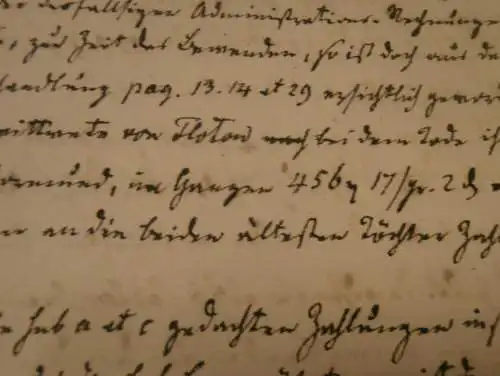 desfallsigen Administrations-Rechnungen
zur Zeit das Bewenden, so ist doch aus de
handlung pag. 13. 14 et 29 ersichtlich gewor
wittwete von Flotow nach bei dem Tode i
ormund, im Ganzen 456 17/gr. 2
an die beiden ältesten Töchter Zah
sub a et c gedachten Zahlungen ins